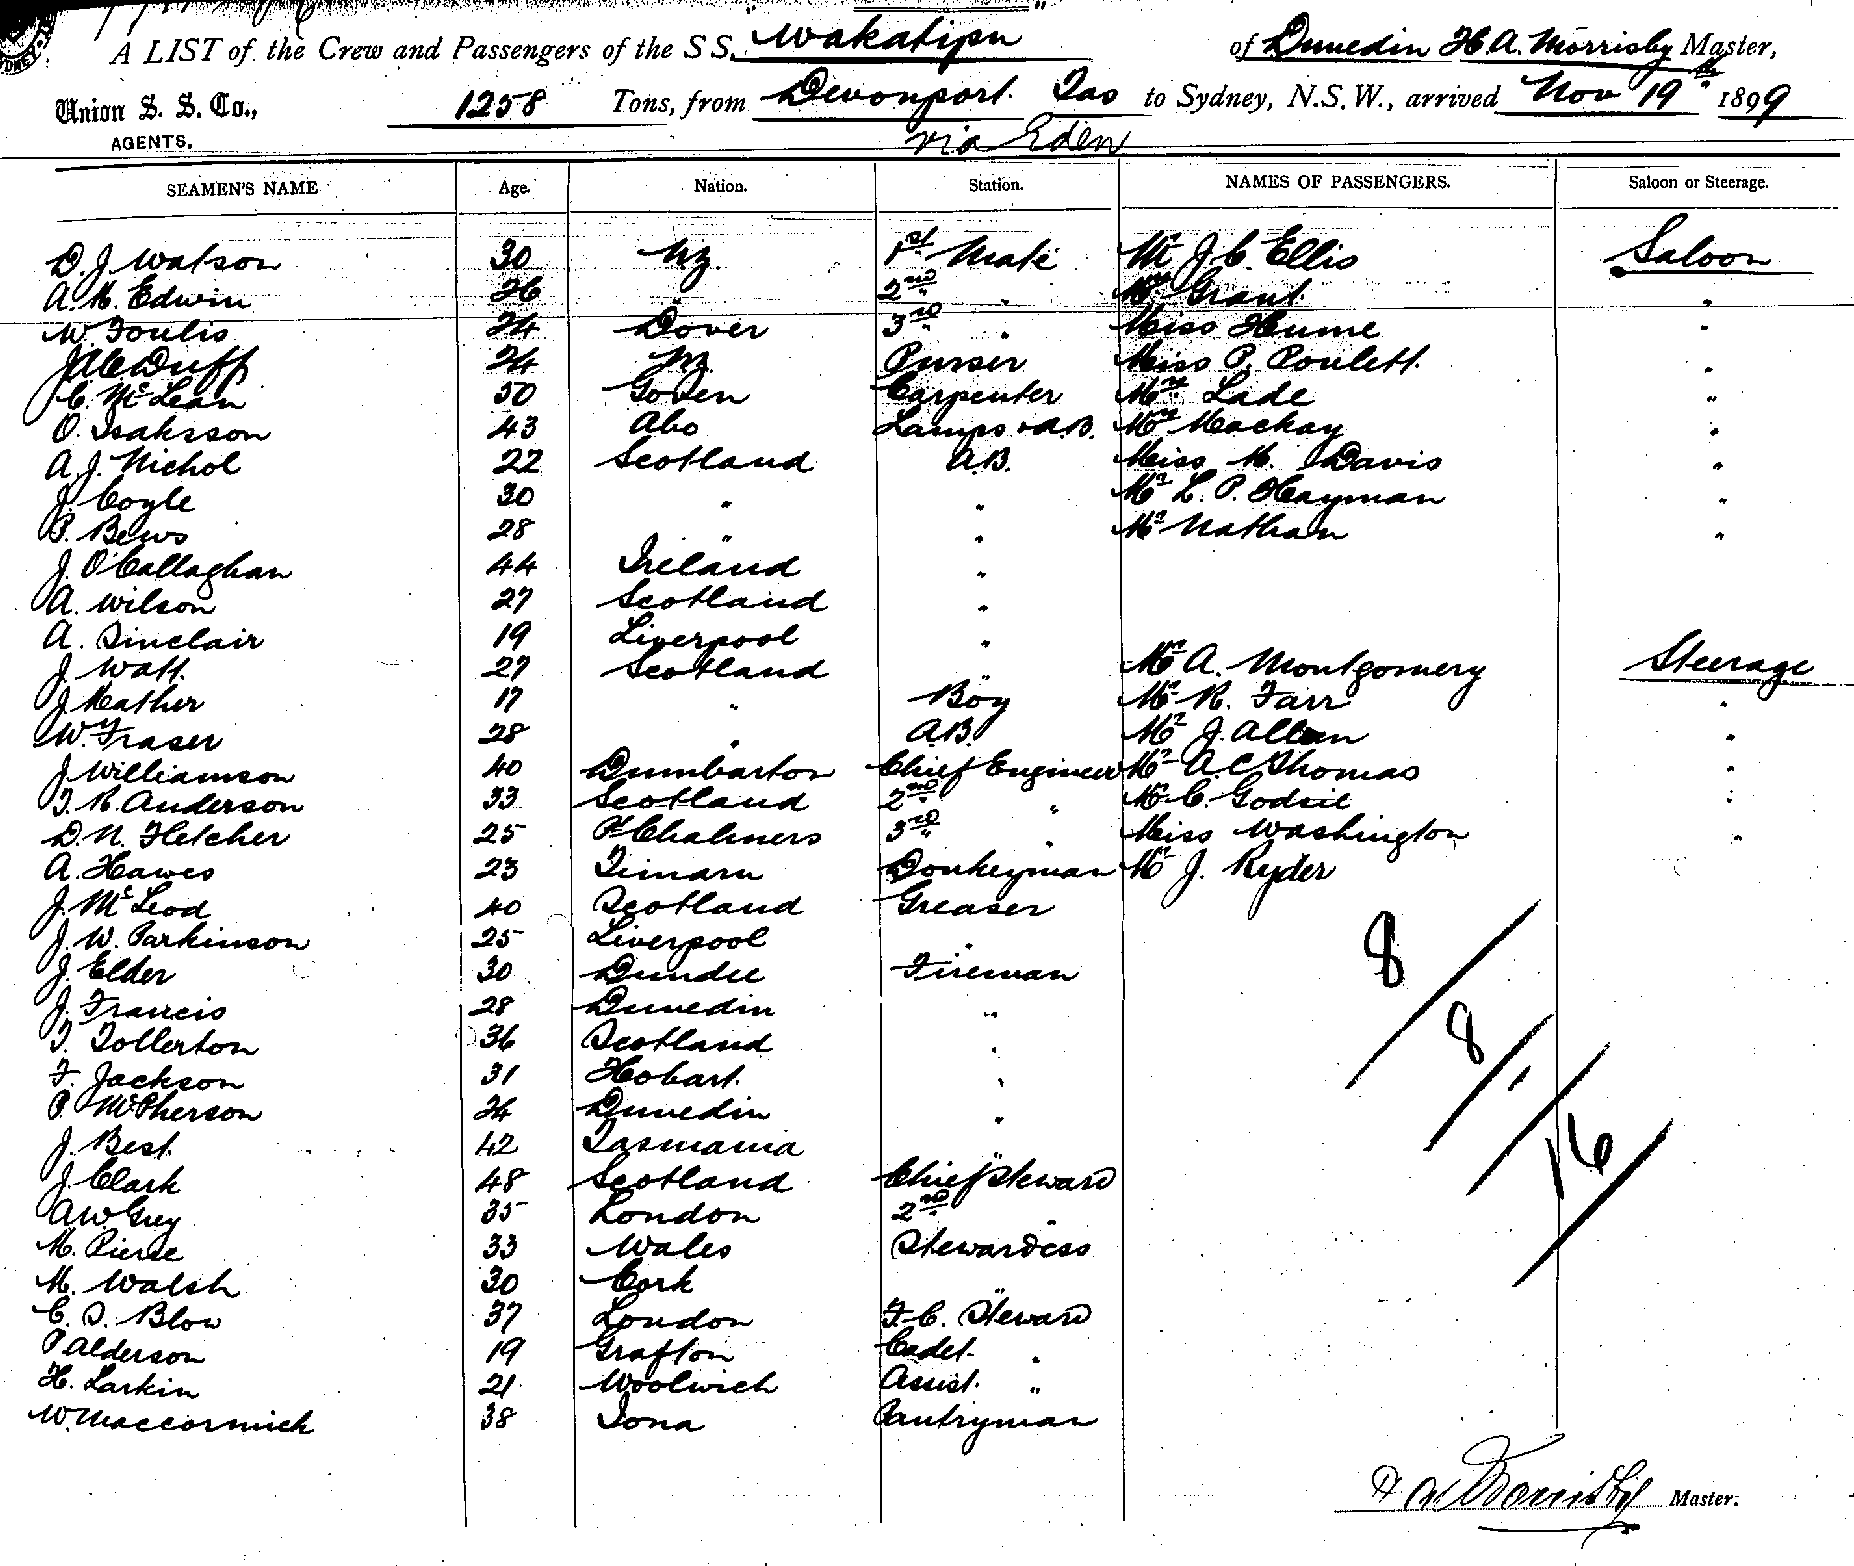 A LIST of the Crew and Passengers of the S S. "Wakatipu" of Dunedin H A. Morrisby Master,
Union S. S. Co., AGENTS. 1258 Tons, from Devonport Tas to Sydney, N.S.W., arrived Nov 19th 1899
via Eden
SEAMEN'S NAME Age. Nation. Station. NAMES OF PASSENGERS. Saloon or Steerage.
D. J Watson 30 NZ. 1st Mate Mr J. C. Ellis Saloon
A. M. Edwin 26 " 2nd " Grant "
W. Foulis 24 Dover 3rd " Miss Hume "
Duff 24 NZ Purser Miss P. Poulett "
C. McLean 50 Carpenter Mrs Lade "
O. Isaksson 43 Abo Lamps & A.B. Mrs Mackay "
A. J. Nichol 22 Scotland A.B. Miss M. Davis "
J. Coyle 30 " " Mr L. P. Hayman "
P. Bews 28 " " Mr Nathan "
J. O'Callaghan 44 Ireland "
A. Wilson 27 Scotland "
A. Sinclair 19 Liverpool "
J. Watt 27 Scotland " Mr A. Montgomery Steerage
J Mather 17 " Boy Mr R. Farr "
W. Fraser 28 " A.B. Mr J. Allan "
J. Williamson 40 Dumbarton Chief Engineer Mr A. C Thomas "
T. R. Anderson 33 Scotland 2nd " Mr C. Godsil "
D. N. Fletcher 25 Pt Chalmers 3rd " Miss Washington "
A. Hawes 23 Timaru Donkeyman Mr J. Ryder
J. McLeod 40 Scotland Greaser
J. W. Parkinson 25 Liverpool "
J. Elder 30 Dundee Fireman
J. Francis 28 Dunedin "
T. Tollerton 36 Scotland "
F. Jackson 31 Hobart "
P. McPherson 24 Dunedin "
J. Best 42 Tasmania "
J. Clark 48 Scotland Chief Steward
A W. Grey 35 London 2nd "
M. Pierse 33 Wales Stewardess
M. Walsh 30 Cork "
C. S. Blow 37 London F. C. Steward
P Alderson 19 Grafton Cadet "
H. Larkin 21 Woolwich Assist. "
W. MacCormick 38 Iona Pantryman
8/8/1/16
H A Morrisby Master.